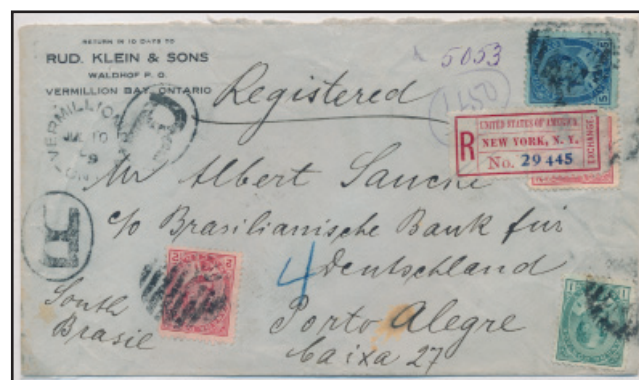 RETURN IN 10 DAYS TO
RUD. KLEIN & SONS
WALDHOF P. O.
VERMILLION BAY, ONTARIO
5053
Registered
VERMILLION
R
UNITED STATES OF AMERICA.
R
NEW YORK, N. Y.
EXCHANGE.
No. 29445
Mr Albert
c/o Brasilianische Bank für
Deutschland
R
4
South
Brasil
Porto Alegre
Caixa 27
5
2 2
1